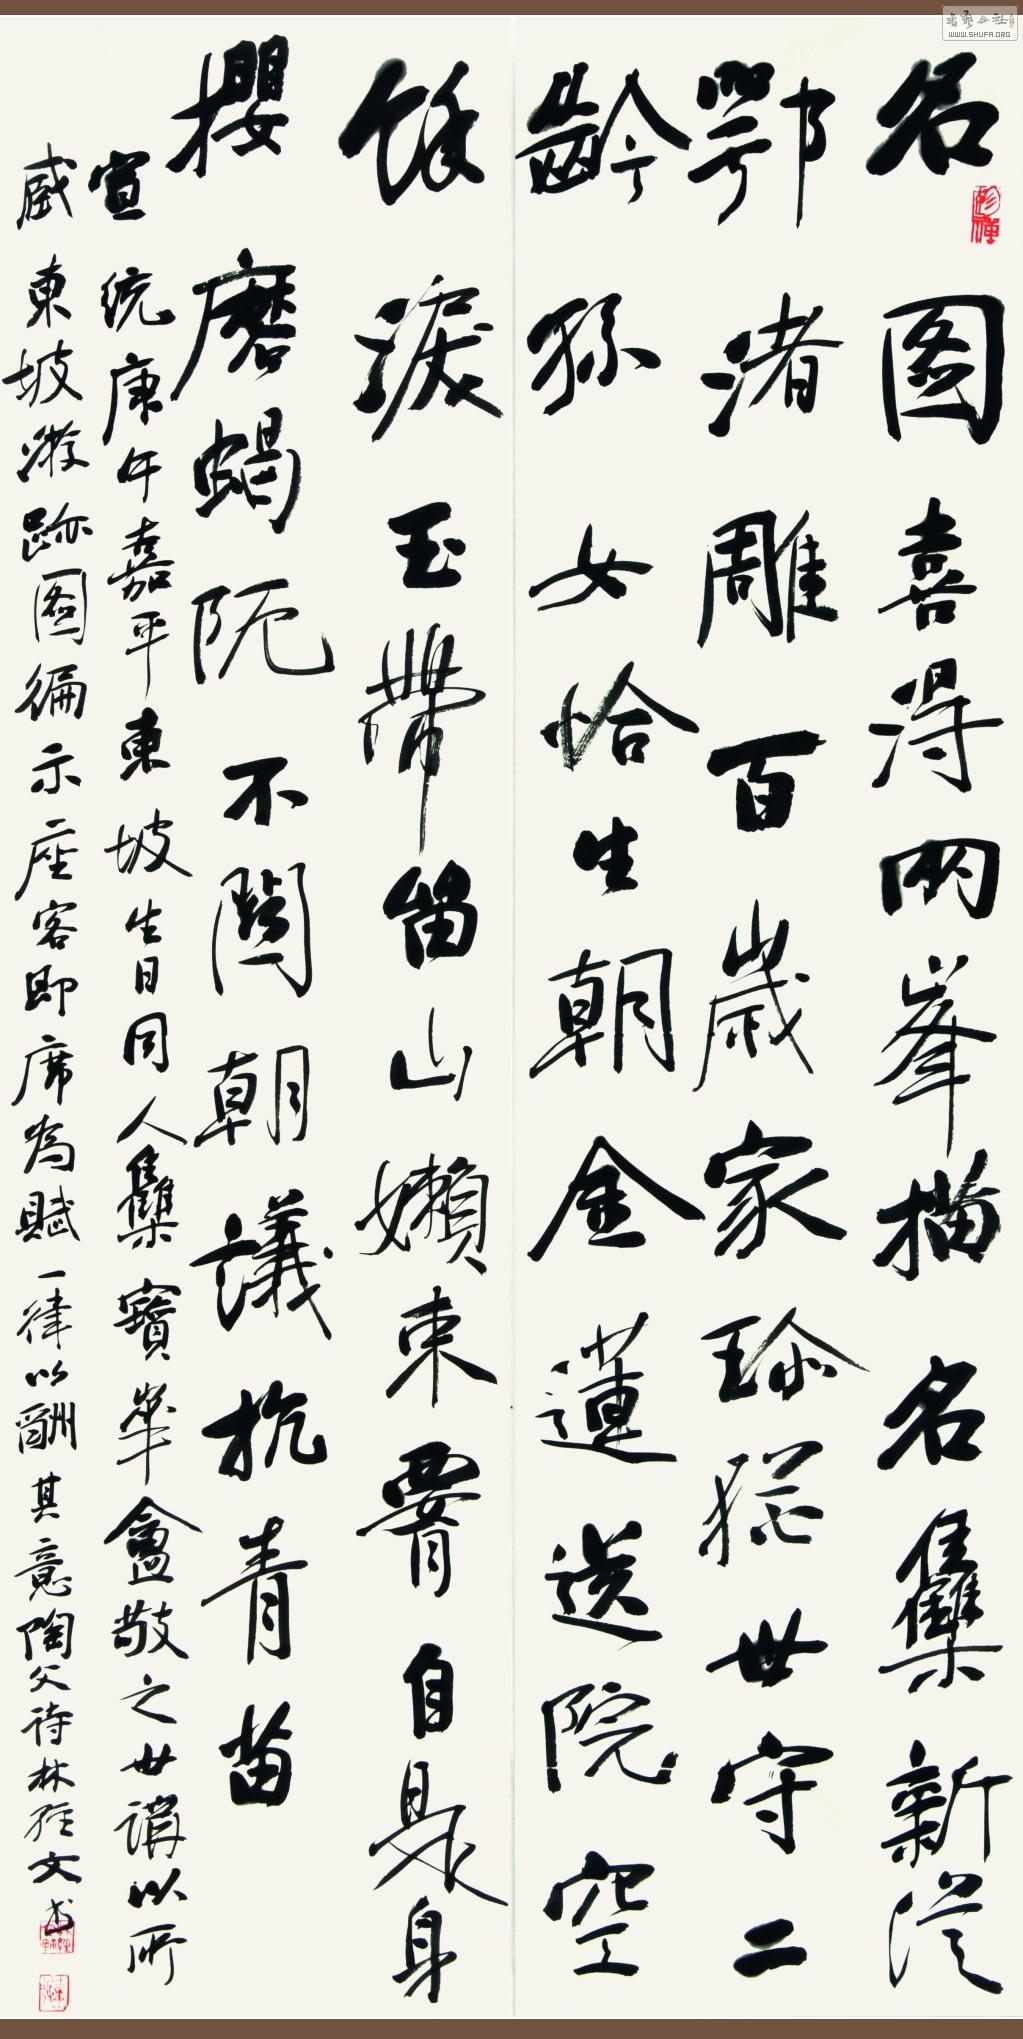 名图喜得两峯描名集新從
鄂渚雕百歲家珍猶世守二
齡孫女恰生朝金蓮送院空
餘淚玉帶留山嬾束腰自是身
攖磨蝎阨不關朝議抗青苗
宣統庚午嘉平東坡生日同人集寶華盦敬之世講以所
藏東坡游跡图徧示座客即席為賦一律以酬其意陶父诗林经文书
书艺公社
WWW.SHUFA.ORG